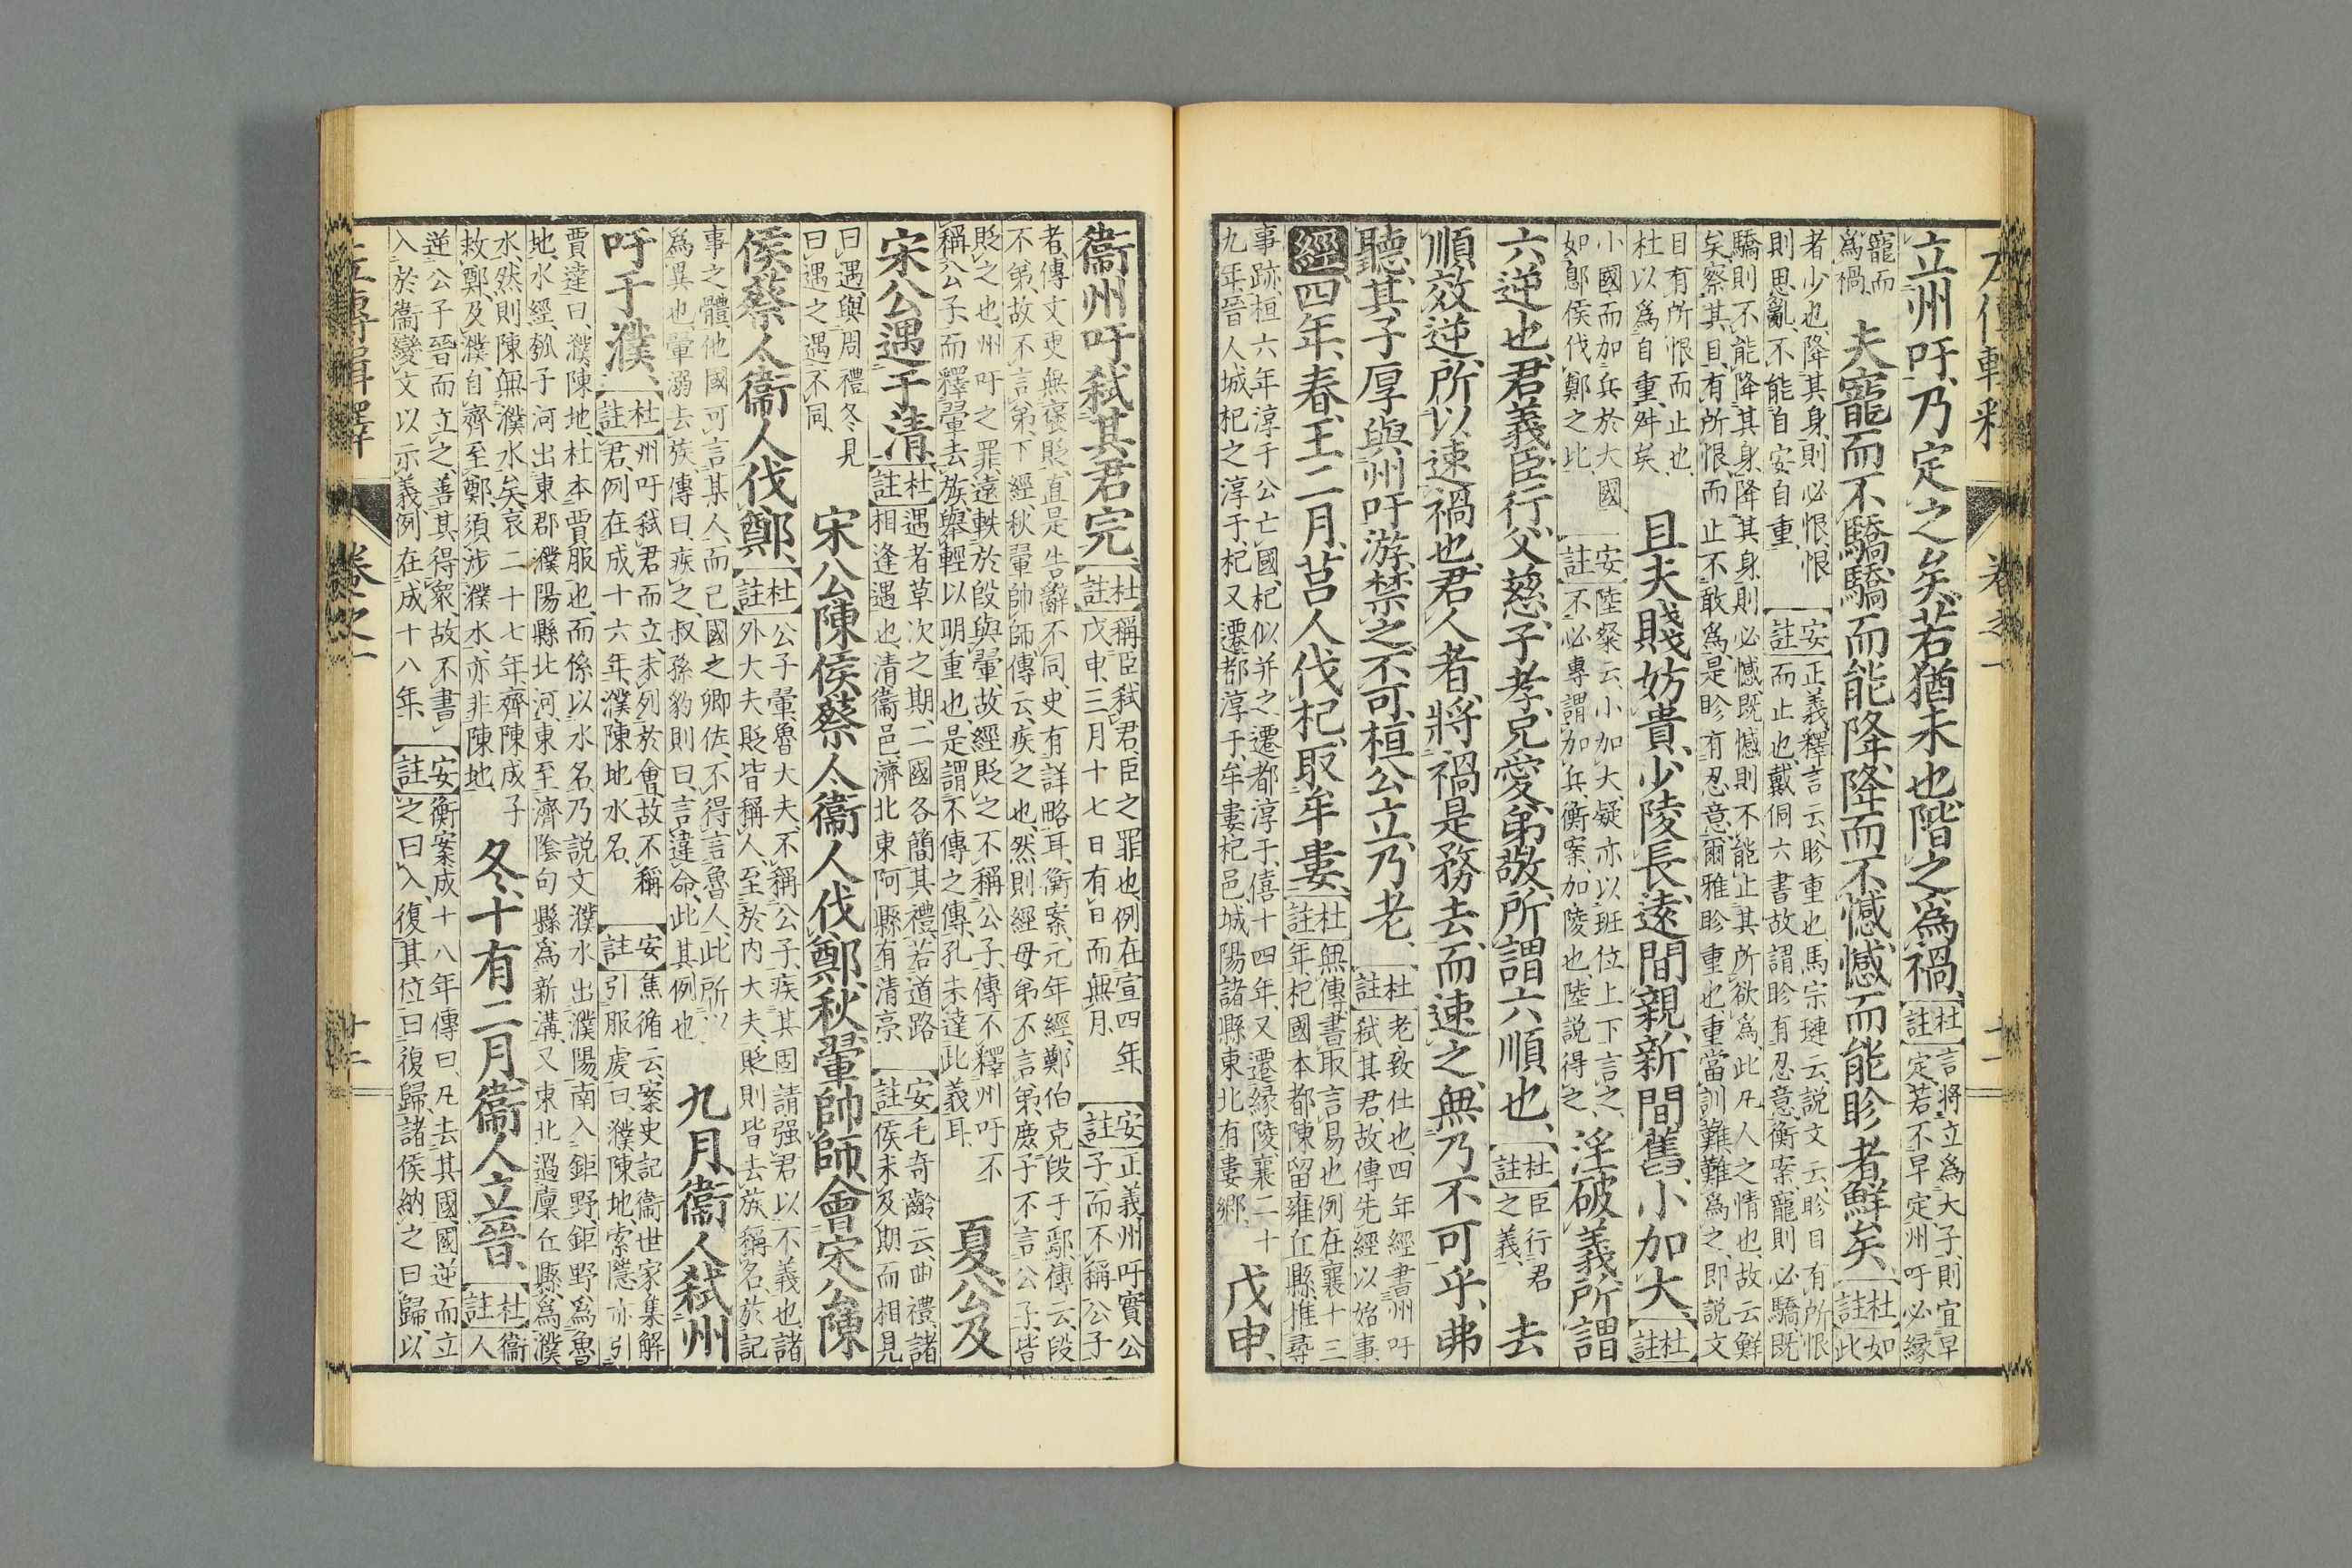 左傳輯釋 卷之一 十一
立州吁、乃定之矣、若猶未也、階之為禍、杜註言將立為大子、則宜早
定、若不早定、州吁必緣
寵而
為禍、
夫寵而不驕、驕而能降、降而不憾、憾而能眕者、鮮矣、杜註如
此
者少也、降其身、則必恨、恨
則思亂、不能自安自重、
安註正義、釋言云、眕重也、馬宗璉云、説文云、眕目有所恨
而止也、戴侗六書故謂眕有忍意、衡案、寵則必驕、既
驕則不能降其身、降其身、則必憾、既憾則不能止其所欲為、此凡人之情也、故云鮮
矣、察其目有所恨、而止不敢為、是眕有忍意、爾雅眕重也、重當訓難、難為之、即説文
目有所恨而止也、
杜以為自重、舛矣、
且夫賤妨貴、少陵長、遠間親、新間舊、小加大、杜註
小國而加兵於大國
如郎侯伐鄭之比、
安註陸粲云、小加大疑亦以班位上下言之、
不必專謂加兵、衡案、加陵也、陸説得之、
淫破義、所謂
六逆也、君義、臣行、父慈、子孝、兄愛、弟敬、所謂六順也、杜註臣行君
之義、
去
順效逆、所以速禍也、君人者、將禍是務去、而速之、無乃不可乎、弗
聽、其子厚與州吁游、禁之、不可、桓公立、乃老、杜註老致仕也、四年經書州吁
弒其君、故傳先經以始事、
經、四年、春、王二月、莒人伐杞、取牟婁、杜註無傳、書取言易也、例在襄十三
年、杞國本都陳留雍丘縣、推尋
事跡、桓六年淳于公亡國、杞似并之、遷都淳于、僖十四年、又遷緣陵、襄二十
九年、晉人城杞之淳于、杞又遷都淳于、牟婁杞邑、城陽諸縣東北有婁鄉、
戊申、
衞州吁弒其君完、杜註稱臣弒君、臣之罪也、例在宣四年、
戊申、三月十七日、有日而無月、
安註正義、州吁實公
子、而不稱公子
者、傳文更無襃貶、直是告辭不同、史有詳略耳、衡案、元年經、鄭伯克段于鄢、傳云、段
不弟、故不言弟、下經、秋翬帥師、傳云、疾之也、然則經母弟不言弟、慶子不言公子、皆
貶之也、州吁之罪、遠軼於段與翬、故經貶之不稱公子、傳不釋州吁不
稱公子、而釋翬去族、舉輕以明重也、是謂不傳之傳、孔未達此義耳、
夏、公及
宋公遇于清、杜註遇者草次之期、二國各簡其禮、若道路
相逢遇也、清衞邑、濟北東阿縣有清亭、
安註毛奇齡云、曲禮、諸
侯未及期而相見
曰遇、與周禮冬見
曰遇之遇不同、
宋公陳侯蔡人衞人伐鄭、秋、翬帥師會宋公陳
侯蔡人衞人伐鄭、杜註公子翬、魯大夫、不稱公子、疾其固請強君以不義也、諸
外大夫貶皆稱人、至於內大夫、貶則皆去族稱名、於記
事之體、他國可言某人、而己國之卿佐、不得言魯人、此所以
為異也、翬溺去族、傳曰、疾之、叔孫豹則曰、言違命、此其例也、
九月、衞人弒州
吁于濮、杜註州吁弒君而立、未列於會、故不稱
君、例在成十六年、濮陳地水名、
安註焦循云、案史記衞世家集解
引服虔曰、濮陳地、索隱亦引
賈逵曰、濮陳地、杜本賈服也、而係以水名、乃説文濮水出濮陽、南入鉅野、鉅野為魯
地、水經瓠子河出東郡濮陽縣北河、東至濟陰句縣為新溝、又東北過廩丘縣為濮
水、然則陳無濮水矣、哀二十七年、齊陳成子
救鄭、及濮、自齊至鄭、須涉濮水、亦非陳地、
冬、十有二月、衞人立晉、杜註衞
人
逆公子晉而立之、善其得衆、故不書
入於衞、變文以示義、例在成十八年、
安註衡案、成十八年傳曰、凡去其國、國逆而立
之曰入、復其位曰復歸、諸侯納之曰歸、以
左傳輯釋 卷之一 十二